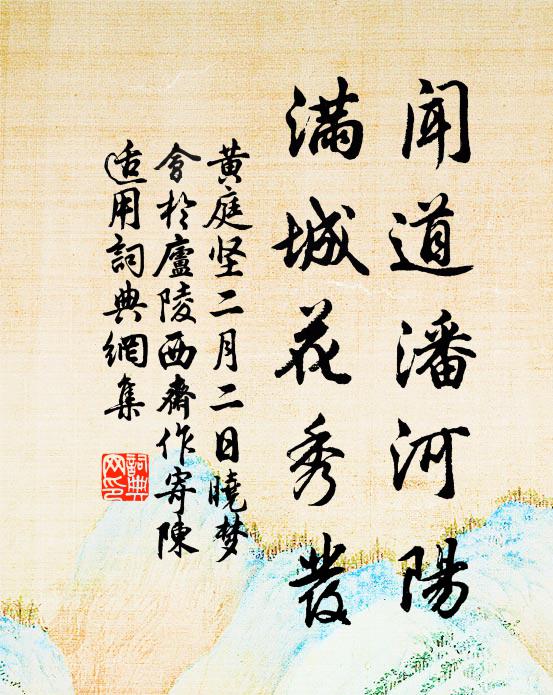 聞道潘河陽
滿城花秀發
黃庭坚二月二日曉梦
會於廬陵西齋作寄陳
适用詞典網集
詞典
网印